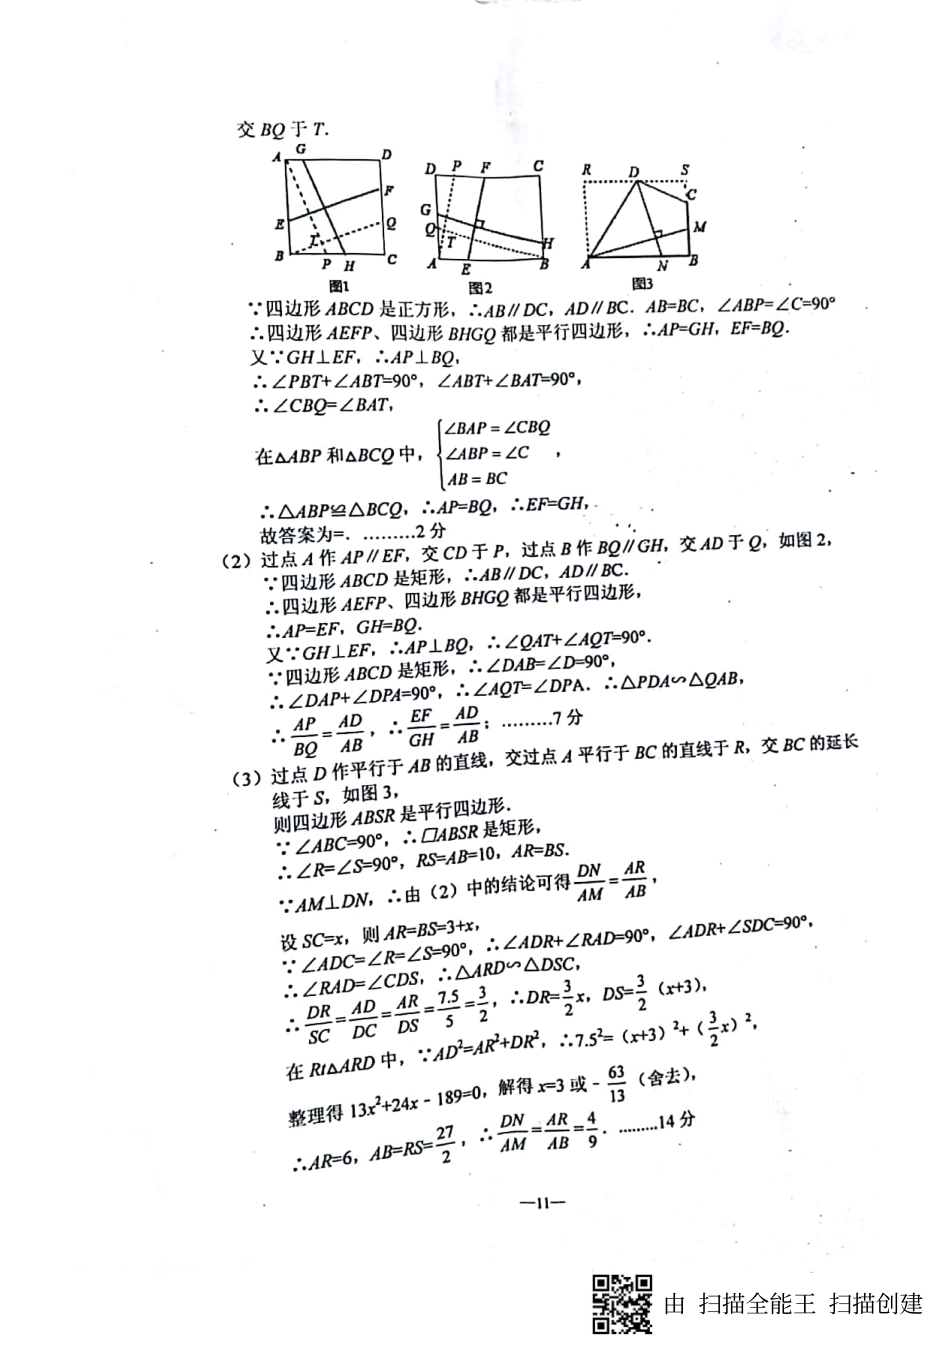 交 BQ 于 T.
A G D F E Q T B P H C 图1
D P F C G Q T H A E B 图2
R D S C M A N B 图3
∵四边形 ABCD 是正方形，∴AB∥DC，AD∥BC．AB=BC，∠ABP=∠C=90°
∴四边形 AEFP、四边形 BHGQ 都是平行四边形，∴AP=GH，EF=BQ.
又∵GH⊥EF，∴AP⊥BQ，
∴∠PBT+∠ABT=90°，∠ABT+∠BAT=90°，
∴∠CBQ=∠BAT，
在△ABP 和△BCQ 中，{∠BAP = ∠CBQ
∠ABP = ∠C ，
AB = BC
∴△ABP≌△BCQ，∴AP=BQ，∴EF=GH，
故答案为=．………2 分
（2）过点 A 作 AP∥EF，交 CD 于 P，过点 B 作 BQ∥GH，交 AD 于 Q，如图 2，
∵四边形 ABCD 是矩形，∴AB∥DC，AD∥BC.
∴四边形 AEFP、四边形 BHGQ 都是平行四边形，
∴AP=EF，GH=BQ.
又∵GH⊥EF，∴AP⊥BQ，∴∠QAT+∠AQT=90°.
∵四边形 ABCD 是矩形，∴∠DAB=∠D=90°，
∴∠DAP+∠DPA=90°，∴∠AQT=∠DPA．∴△PDA∽△QAB，
∴AP/BQ=AD/AB，∴EF/GH=AD/AB；………7 分
（3）过点 D 作平行于 AB 的直线，交过点 A 平行于 BC 的直线于 R，交 BC 的延长
线于 S，如图 3，
则四边形 ABSR 是平行四边形.
∵∠ABC=90°，∴▱ABSR 是矩形，
∴∠R=∠S=90°，RS=AB=10，AR=BS.
∵AM⊥DN，∴由（2）中的结论可得 DN/AM=AR/AB，
设 SC=x，则 AR=BS=3+x，
∵∠ADC=∠R=∠S=90°，∴∠ADR+∠RAD=90°，∠ADR+∠SDC=90°，
∴∠RAD=∠CDS，∴△ARD∽△DSC，
∴DR/SC=AD/DC=AR/DS=7.5/5=3/2，∴DR=3/2x，DS=3/2（x+3），
在 Rt△ARD 中，∵AD²=AR²+DR²，∴7.5²=（x+3）²+（3/2x）²，
整理得 13x²+24x﹣189=0，解得 x=3 或﹣63/13（舍去），
∴AR=6，AB=RS=27/2，∴DN/AM=AR/AB=4/9．………14 分
—11—
由 扫描全能王 扫描创建